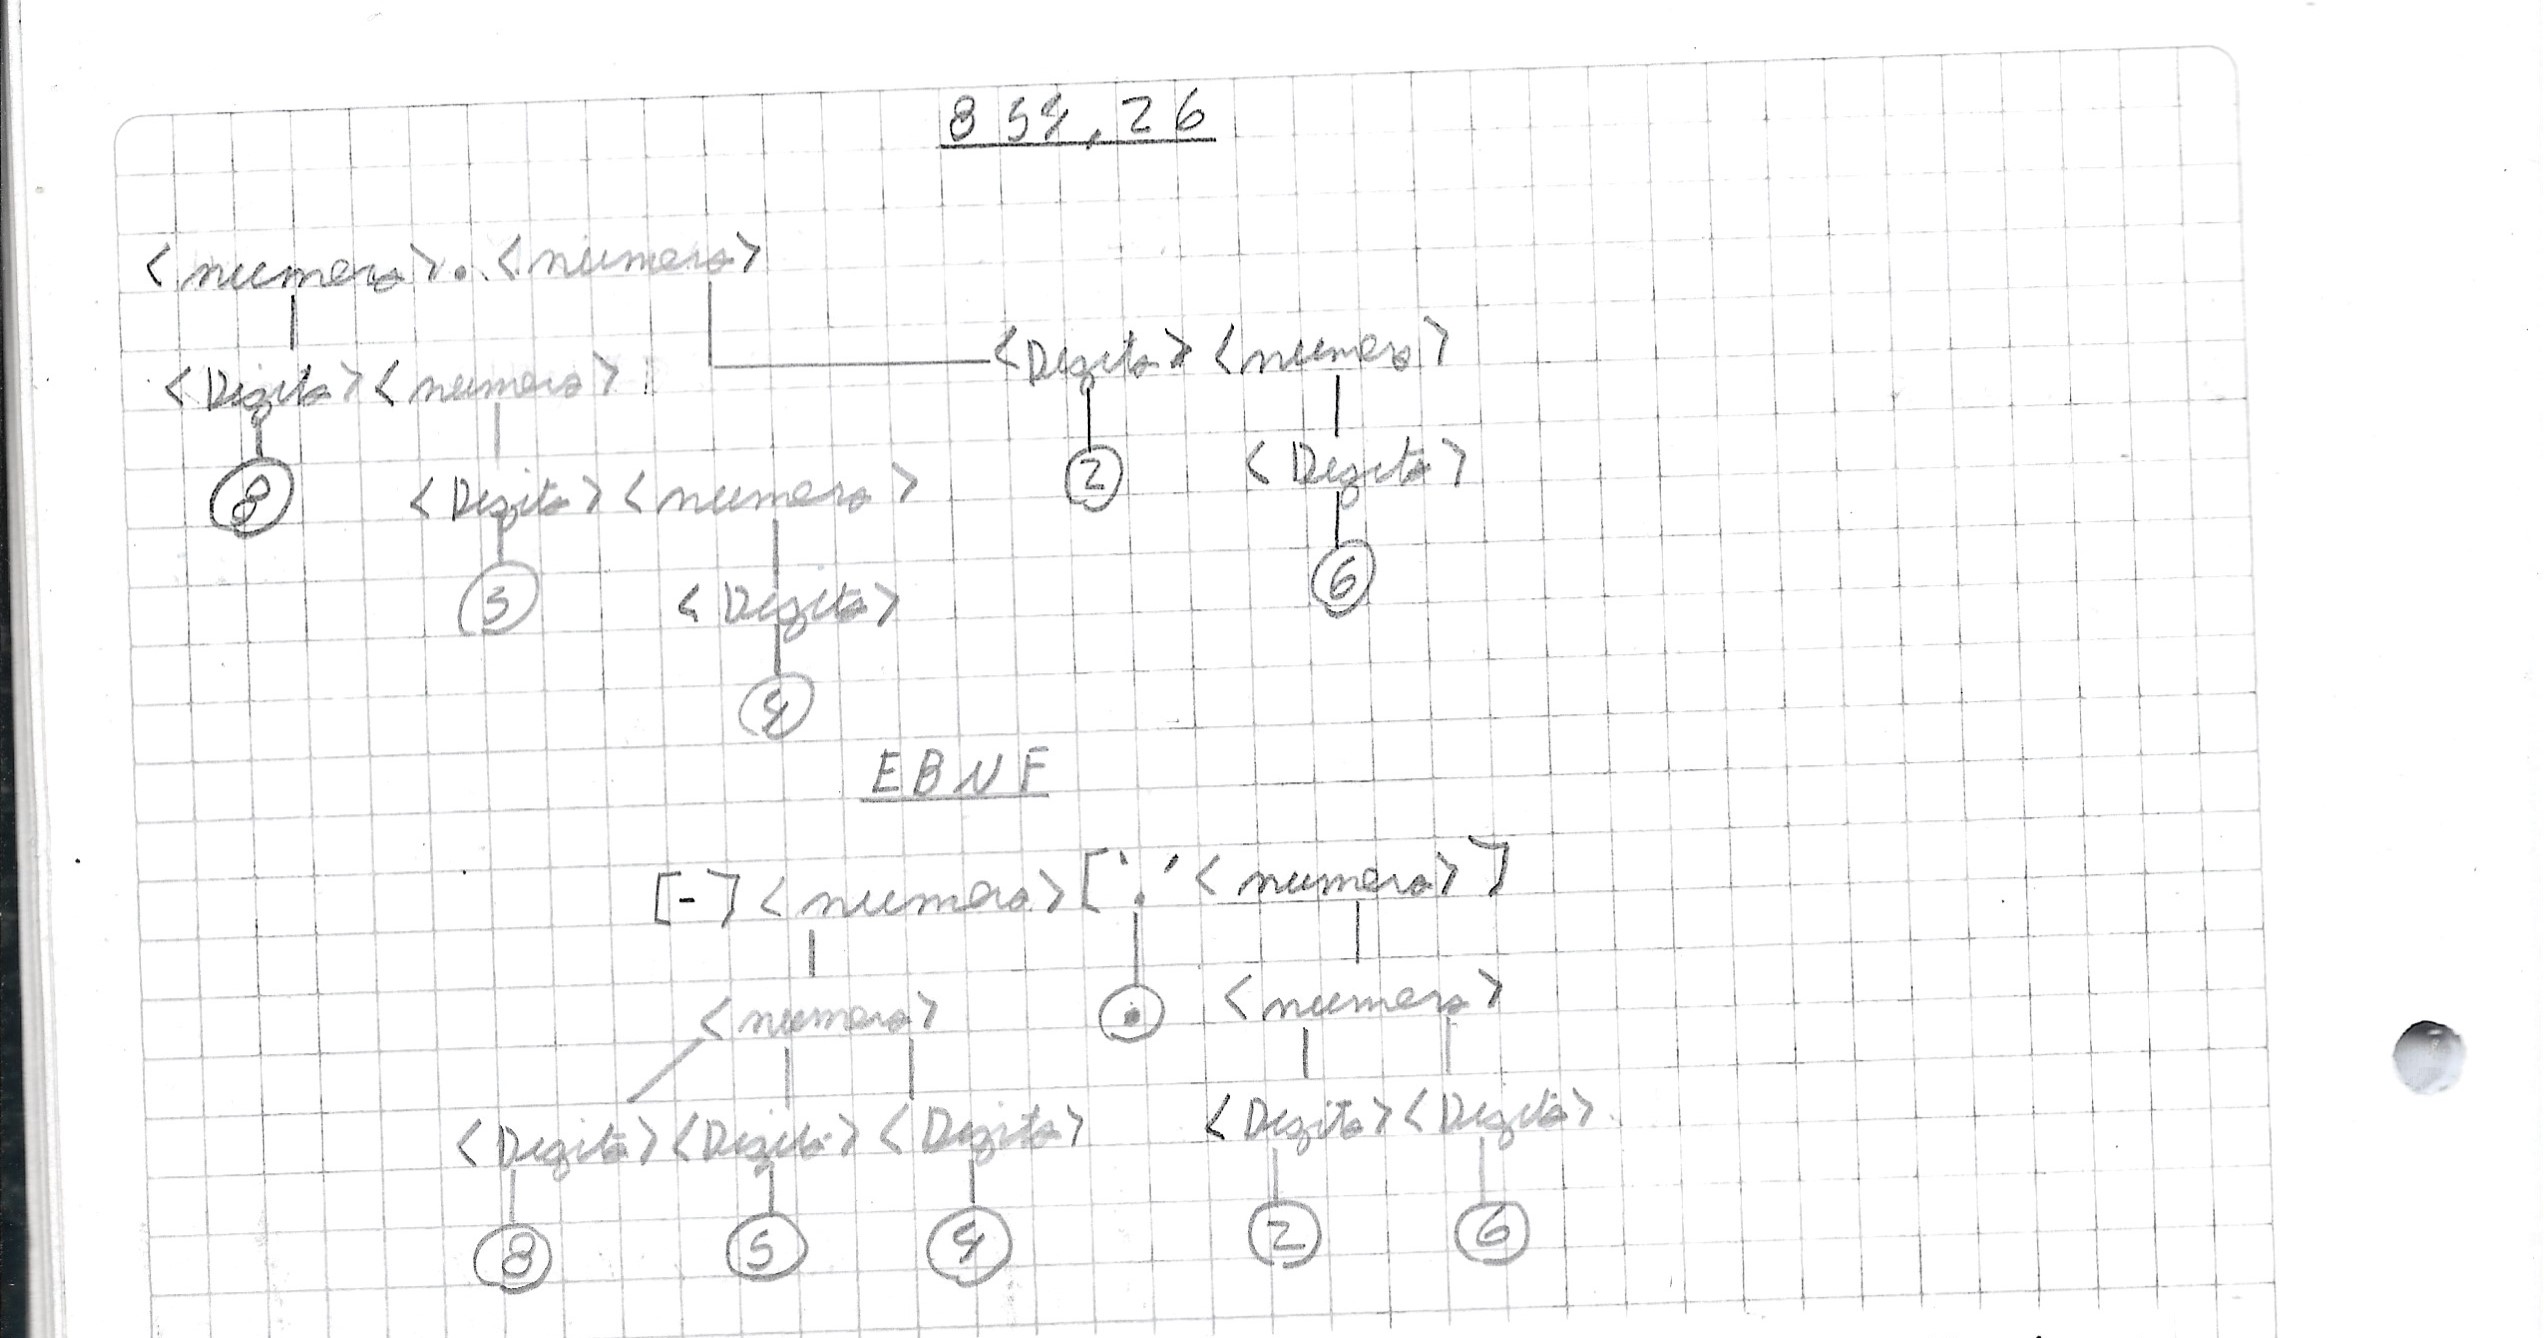 854,26
<numero>.<numero>
<Digito><numero>
<Digito><numero>
8
2
<Digito><numero>
<Digito>
5
6
<Digito>
4
EBNF
[-]<numero>['.'<numero>]
<numero> . <numero>
<Digito><Digito><Digito> <Digito><Digito>
8 5 4 2 6